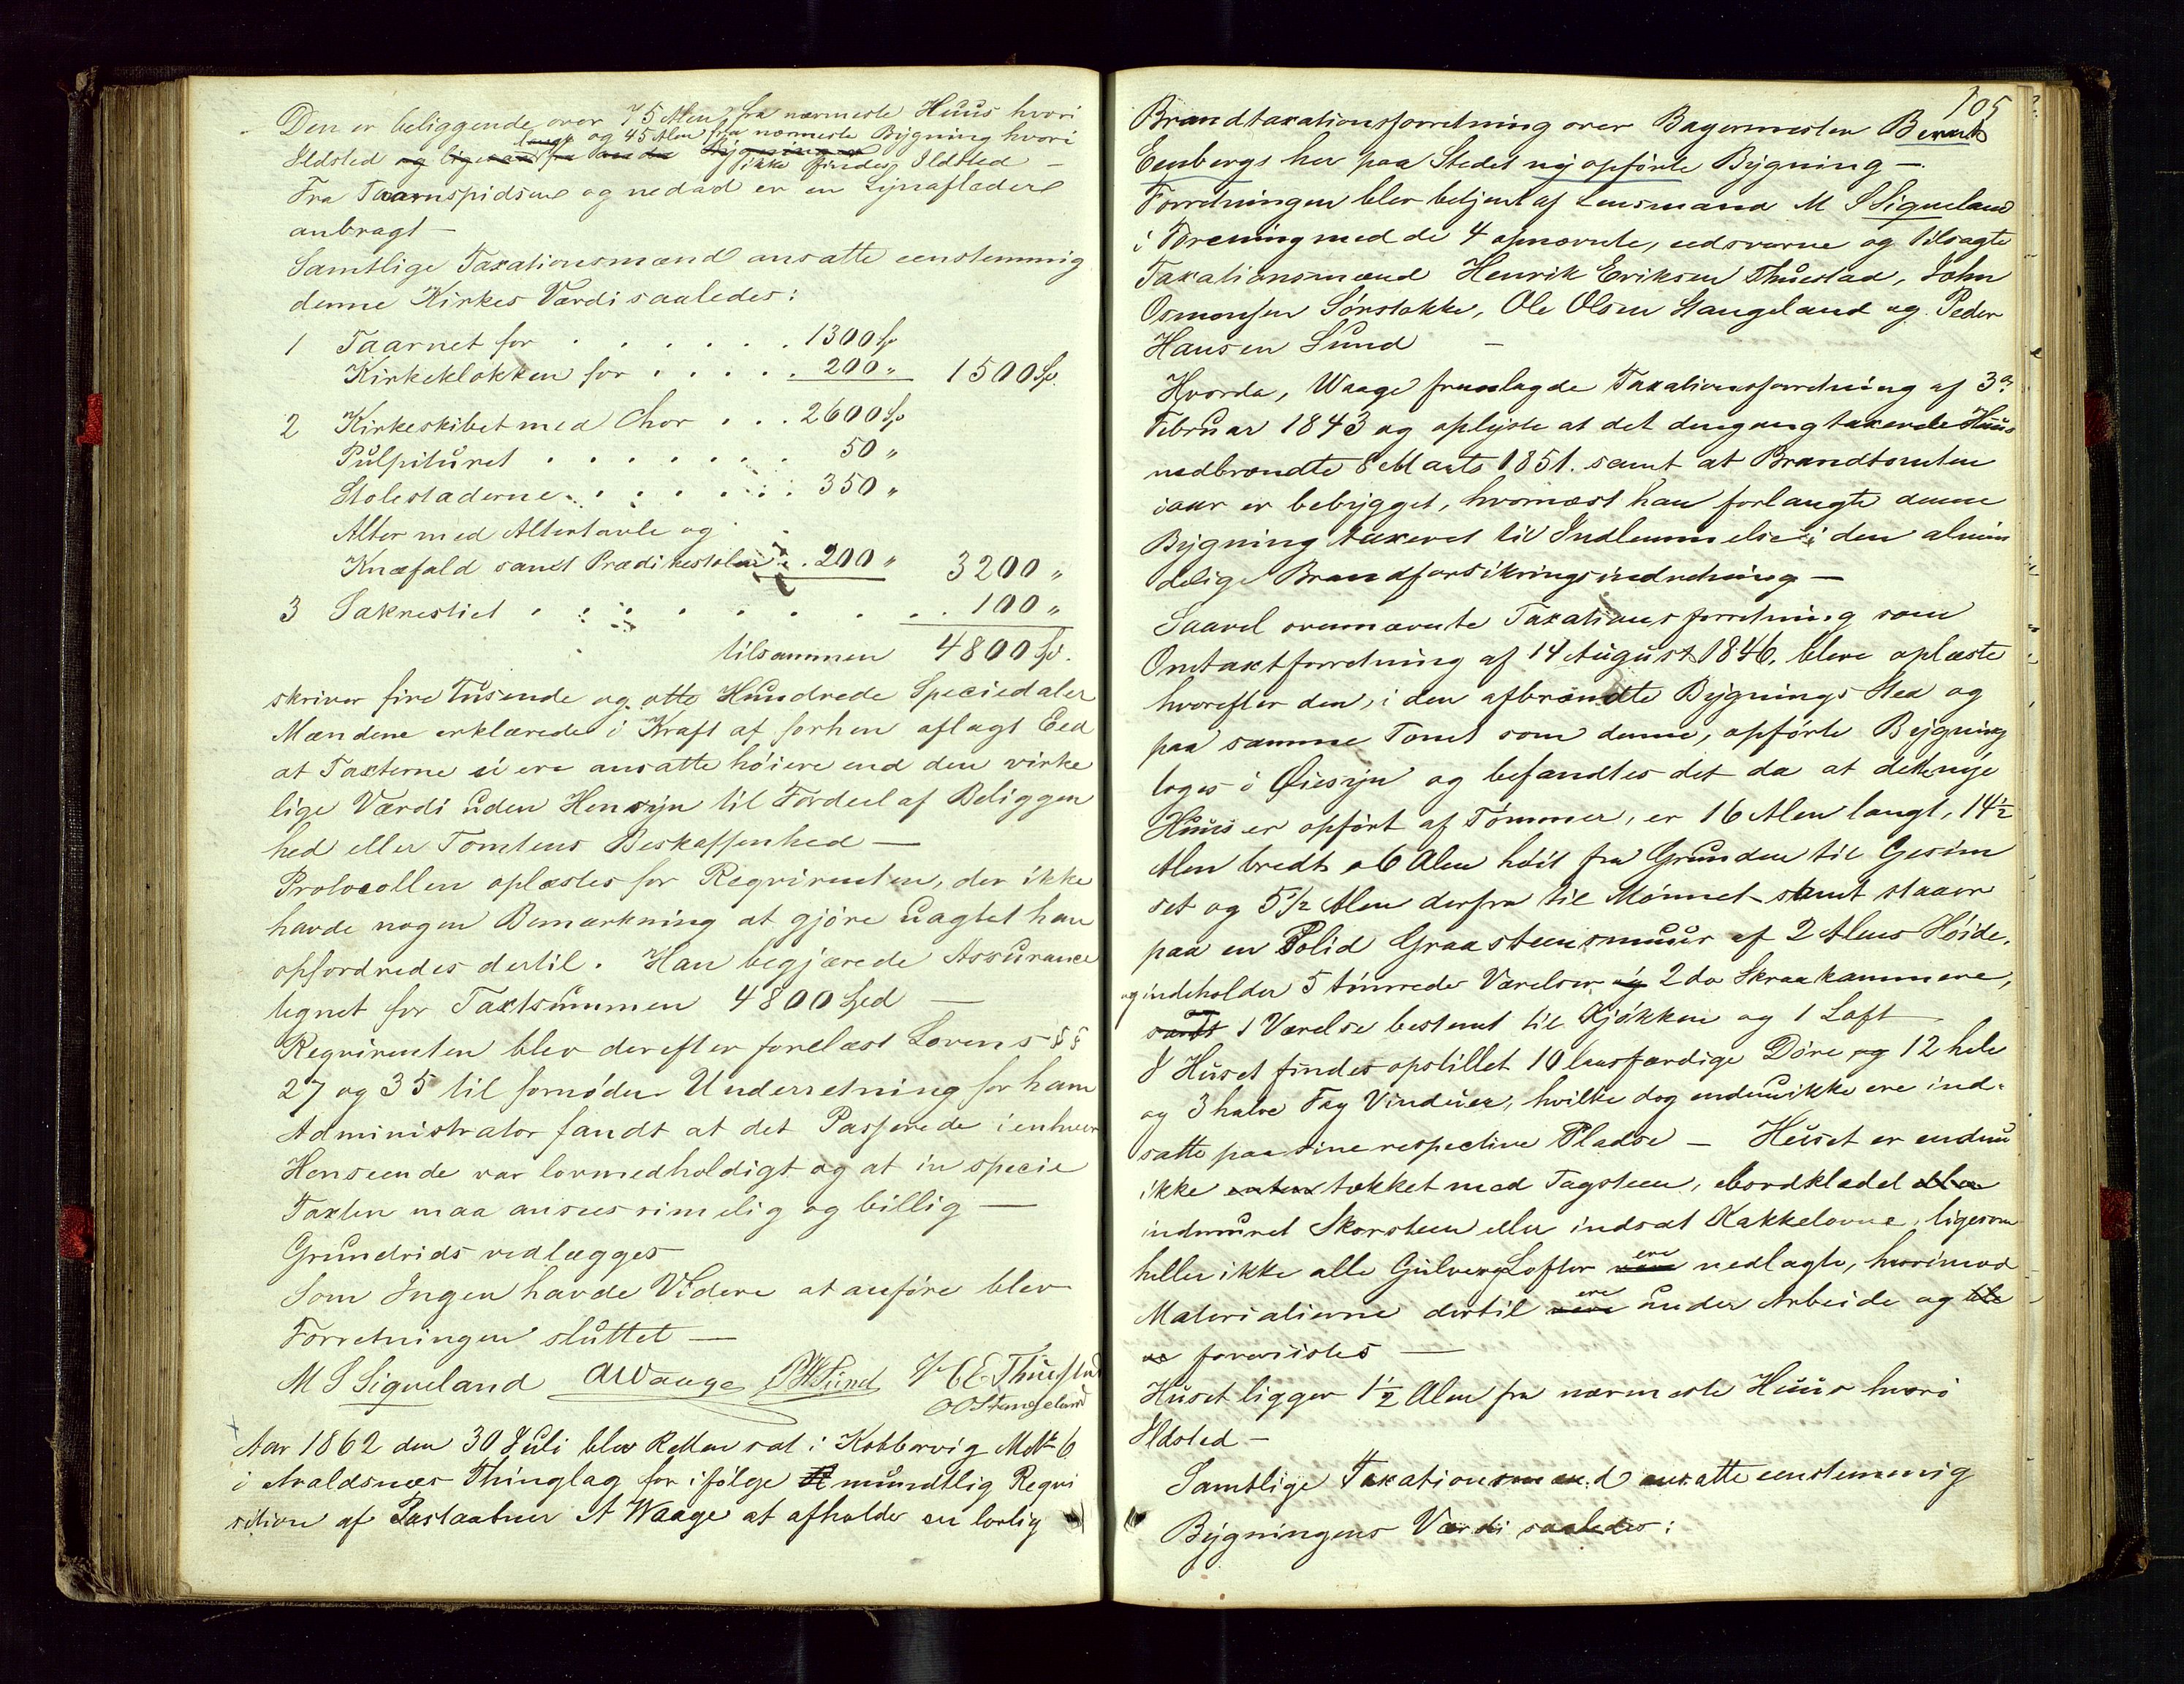 Den er beliggende over 75 Alen fra nærmeste Huus hvori
Ildsted og 45 Alen fra nærmeste Bygning hvori
ikke findes Ildsted –
Fra Taarnspidsen og nedad er en Lynafleder
anbragt –
Samtlige Taxationsmænd ansatte eenstemmig
denne Kirkes Værdi saaledes:
1 Taarnet for . . . . . . . 1300 Sp
Kirkeklokken for . . . . . 200 " 1500 Sp.
2 Kirkeskibet med Chor . . . 2600 Sp
Pulpituret . . . . . . . 50 "
Stolestaderne . . . . . . 350 "
Alter med Altertavle og
Knæfald samt Prædikestolen . . 200 " 3200 "
3 Sakrestiet . . . . . . . . . 100 "
tilsammen 4800 Sp.
skriver fire Tusende og otte Hundrede Speciedaler
Mændene erklærede i Kraft af forhen aflagt Eed
at Taxterne ei ere ansatte høiere end den virke
lige Værdi uden Hensyn til Fordeel af Beliggen
hed eller Tomtens Beskaffenhed –
Protocollen oplæstes for Reqvirenten, der ikke
havde nogen Bemærkning at gjøre uagtet han
opfordredes dertil. Han begjærede Assurance
tegnet for Taxtsummen 4800 Spd –
Reqvirenten blev derefter forelæst Lovens §§
27 og 35 til fornøden Underretning for ham
Administrator fandt at det Passerede i enhver
Henseende var lovmedholdigt og at in specie
Taxten maa ansees rimelig og billig –
Grundrids vedlægges
Som Ingen havde Videre at anføre blev
Forretningen sluttet –
M S Siqveland AWaage PHSund H E Thuestad
OOStangeland
Aar 1862 den 30 Juli blev Retten sat i Kobbervig MNr 6
i Avaldsnæs Thinglag for ifølge mundtlig Reqvi
sition af A Waage at afholde en lovlig
105
Brandtaxationsforretning over Bagermester Berent
Eenbergs her paa Stedet ny opførte Bygning –
Forretningen blev betjent af Lensmand M S Siqveland
i Forening med de 4 opnævnte, eedsvorne og tilsagte
Taxationsmænd Henrik Eriksen Thuestad, John
Osmonsen Sørstokke, Ole Olsen Stangeland og Peder
Hansen Sund –
Hvorda, Waage fremlagde Taxationsforretning af 3die
Februar 1843 og oplyste at det dengang taxerede Huus
nedbrændte 8 Marts 1851. samt at Brandtomten
iaar er bebygget, hvornæst han forlangte denne
Bygning taxeret til Indlemmelse i den almin
delige Brandforsikringsindretning –
Saavel ovennævnte Taxationsforretning som
Omtaxtforretning af 14 August 1846, bleve oplæste
hvorefter den, i den afbrændte Bygnings Sted og
paa samme Tomt som denne, opførte Bygning
toges i Øiesyn og befandtes det da at dette nye
Huus er opført af Tømmer, er 16 Alen langt, 14½
Alen bredt, 6 Alen høit fra Grunden til Gesim
set og 5½ Alen derfra til Mønnet samt staaer
paa en Solid Graasteensmuur af 2 Alens Høide,
og indeholder 5 tømrede Værelser 2 do Skraakammere,
1 Værelse bestemt til Kjøkken og 1 Loft
I Huset findes opstillet 10 laasfærdige Døre og 12 hele
og 3 halve Fag Vinduer, hvilke dog endnu ikke ere ind-
satte paa sine respective Pladse – Huset er endnu
ikke tækket med Tagsteen, bordklædet
indmuret Skorsteen eller indsat Kakkelovne, ligesom
heller ikke alle Gulve og Lofter ere nedlagte, hvorimod
Materialierne dertil ere under Arbeide og
forevistes –
Huset ligger 1½ Alen fra nærmeste Huus hvori
Ildsted –
Samtlige Taxationsmænd ansatte eenstemmig
Bygningens Værdi saaledes: